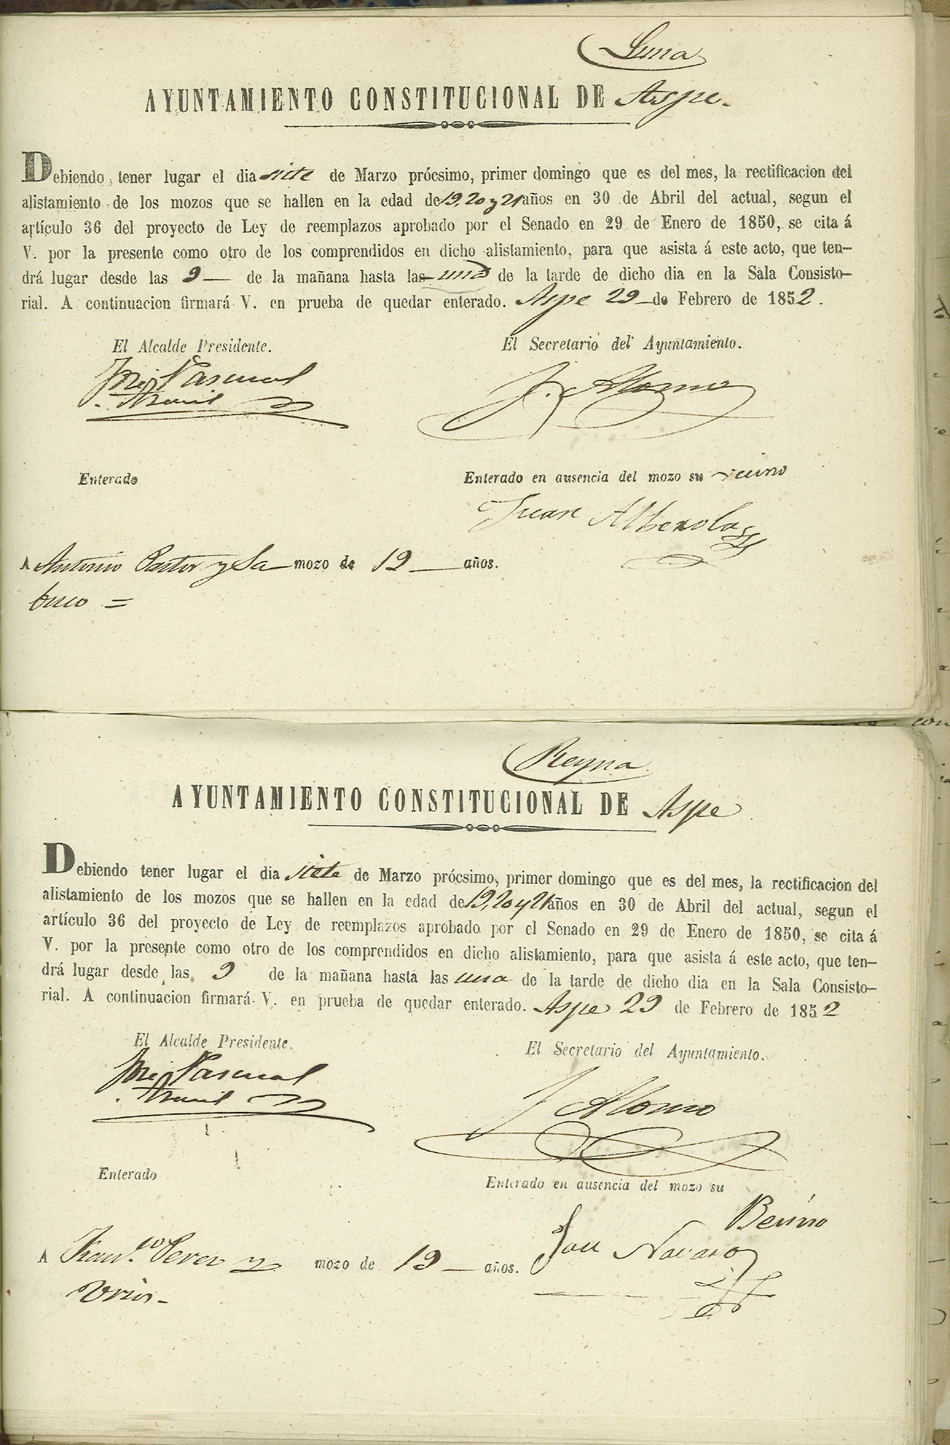 Luna
AYUNTAMIENTO CONSTITUCIONAL DE Aspe.
Debiendo tener lugar el dia siete de Marzo prócsimo, primer domingo que es del mes, la rectificacion del
alistamiento de los mozos que se hallen en la edad de 19, 20 y 21 años en 30 de Abril del actual, segun el
artículo 36 del proyecto de Ley de reemplazos aprobado por el Senado en 29 de Enero de 1850, se cita á
V. por la presente como otro de los comprendidos en dicho alistamiento, para que asista á este acto, que ten-
drá lugar desde las 9 — de la mañana hasta las una de la tarde de dicho dia en la Sala Consisto-
rial. A continuacion firmará V. en prueba de quedar enterado. Aspe 29 de Febrero de 1852.
El Alcalde Presidente. El Secretario del Ayuntamiento.
José Pascual J. Alonso
Enterado Enterado en ausencia del mozo su vecino
Juan Alberola
A Antonio Pastor y Sa- mozo de 19 — años.
buco =
Reyna
AYUNTAMIENTO CONSTITUCIONAL DE Aspe
Debiendo tener lugar el dia siete de Marzo prócsimo, primer domingo que es del mes, la rectificacion del
alistamiento de los mozos que se hallen en la edad de 19, 20 y 21 años en 30 de Abril del actual, segun el
artículo 36 del proyecto de Ley de reemplazos aprobado por el Senado en 29 de Enero de 1850, se cita á
V. por la presente como otro de los comprendidos en dicho alistamiento, para que asista á este acto, que ten-
drá lugar desde las 9 de la mañana hasta las una de la tarde de dicho dia en la Sala Consisto-
rial. A continuacion firmará V. en prueba de quedar enterado. Aspe 29 de Febrero de 1852
El Alcalde Presidente. El Secretario del Ayuntamiento.
José Pascual J Alonso
Enterado Enterado en ausencia del mozo su
Becino
A Fran.co Perez y mozo de 19 — años. Navarro